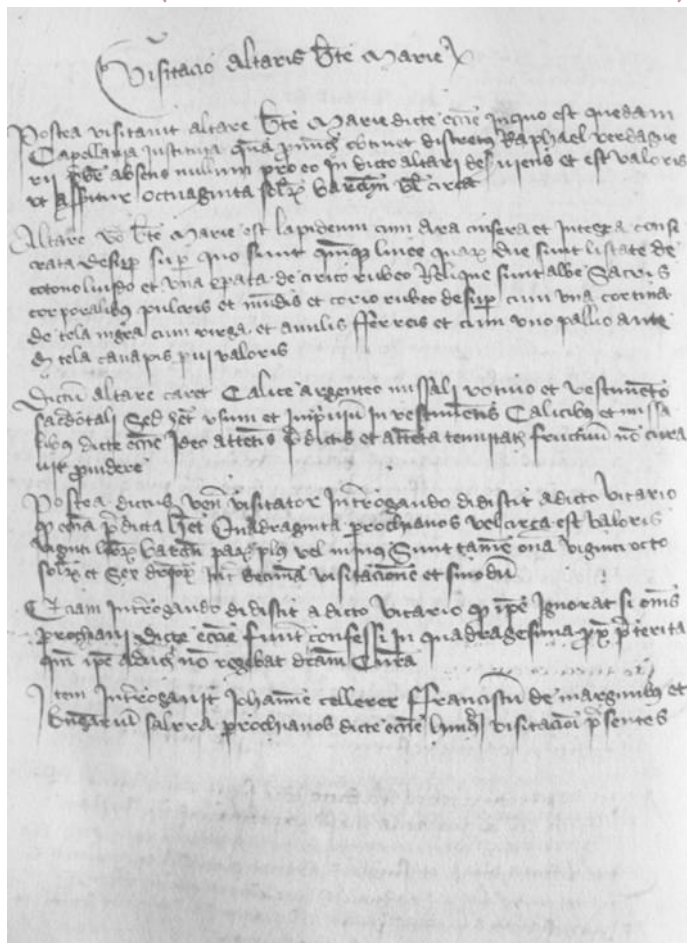 Visitacio altaris bte Marie
Postea visitavit altare bte Marie dicte eccie in quo est quedam
Capellania instituta quam obtinet discretus Raphael verdague
rii absens nullum pro eo in dicto altari des uiens et est valoris
ut assitur octuaginta solx barchn vl circa
Altare vo bte Marie est lapideum cum ara insera et integra conse
crata desup sup quo sunt quinqz linee quarx due sunt listate de
cotono liuido et una de cirico rubeo Relique sunt albe Sacris
corporalibus pulcris et mudis et corio rubeo desup cum una cortina
de tela nigra cum virga et anulis fferreis et cum uno pallio ante
tela canapis pui valoris
Dictu altare caret Calice argenteo missali votiuo et vestimeto
sacdotali Sed het usum et in vestimentis Calicibus et missa
libus dicte eccie Ideo attentis pdictis et atteta tenuitate fructuum no cura
uit prouidere
Postea dictus ven visitator introgando didisit a dicto vicario
qp eccia pdicta het Quadraginta prochianos vel circa est valoris
viginti librx barchn parx plus vel minus Sunt tamen viginti octo
solx et sex decima visitacione et sinodu
Etiam introgando didisit a dicto vicario qp ipe ignorat si oms
prochiani dicte eccie sunt confessi in quadragesima prox pterita
qm ipe aduc no regebat dcam cura
Item introgauit Johannem cellerer ffranciscu de marginibus et
sarra prochianos dicte eccie visitacioi psentes